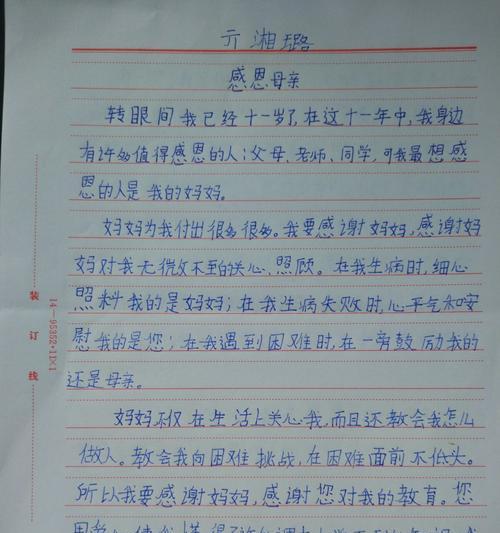 亓湘璐
感恩母亲
转眼间我已经十一岁了,在这十一年中,我身边
有许多值得感恩的人:父母、老师、同学,可我最想感
恩的人是我的妈妈。
妈妈为我付出很多很多。我要感谢妈妈,感谢妈
妈对我无微不至的关心、照顾。在我生病时,细心
照料我的是妈妈;在我生病失败时,心平气和安
慰我的是您;在我遇到困难时,在一旁鼓励我的
还是母亲。
妈妈不仅在生活上关心我,而且还教会我怎么
做人。教会我向困难挑战,在困难面前不低头。
所以我要感谢妈妈,感谢您对我的教育。您
装订线
14—95352·11×1